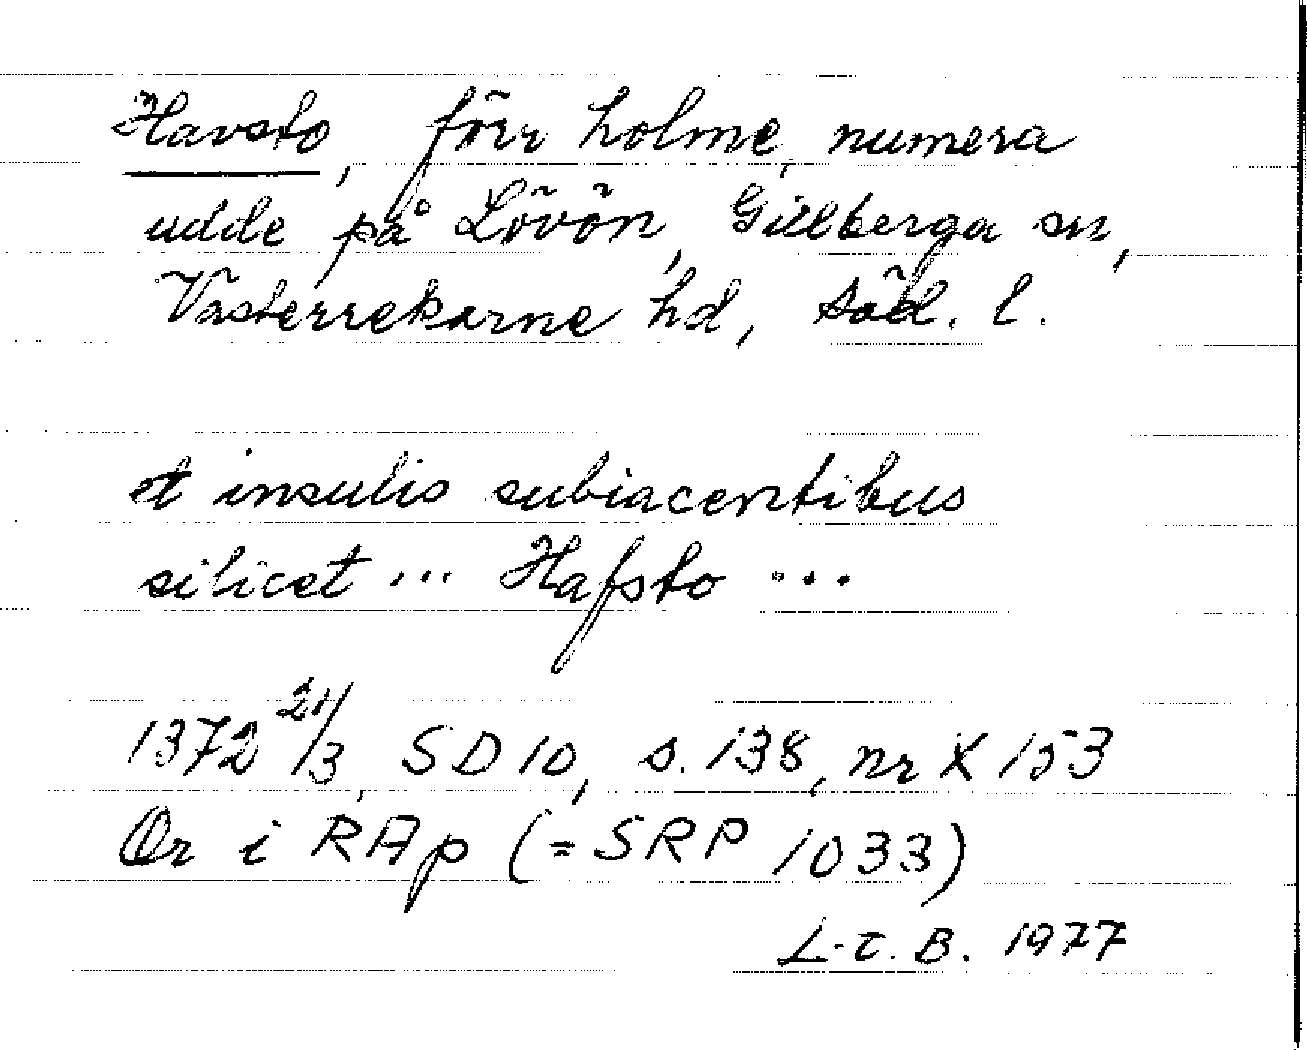 Havsto, förr holme, numera
udde på Lövön, Gillberga sn,
Västerrekarne hd, Söd. l.
et insulis subiacentibus
silicet ... Hafsto ...
1372 21/3, SD 10, s. 138, nr X 153
Or i RAp (= SRP 1033)
L-E. B. 1977